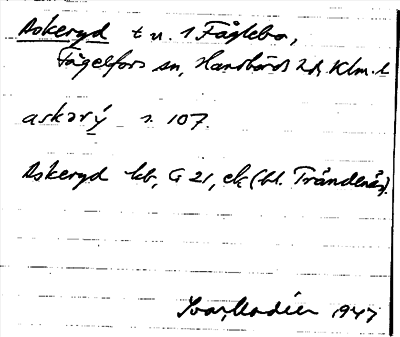 Askeryd t n. 1 Fåglebo,
Fågelfors sn, Handbörds hd. Klm. l
askarý s. 107.
Askeryd kb, G 21, ek (bl. Tråndenäs).
Ivar Modéer 1947